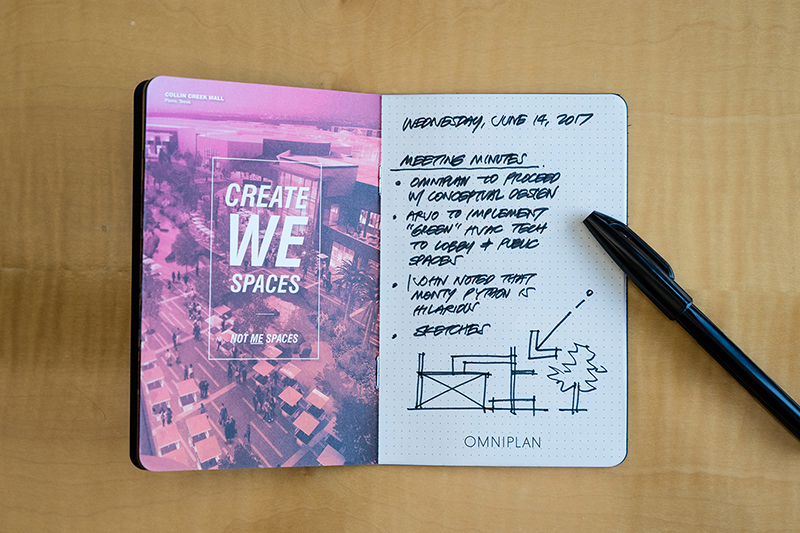 COLLIN CREEK MALL
Plano, Texas
CREATE
WE
SPACES
NOT ME SPACES
WEDNESDAY, JUNE 14, 2017
MEETING MINUTES
• OMNIPLAN TO PROCEED
W/ CONCEPTUAL DESIGN
• ARVO TO IMPLEMENT
"GREEN" HVAC TECH
TO LOBBY & PUBLIC
SPACES
• JOHN NOTED THAT
MONTY PYTHON IS
HILARIOUS
• SKETCHES
OMNIPLAN